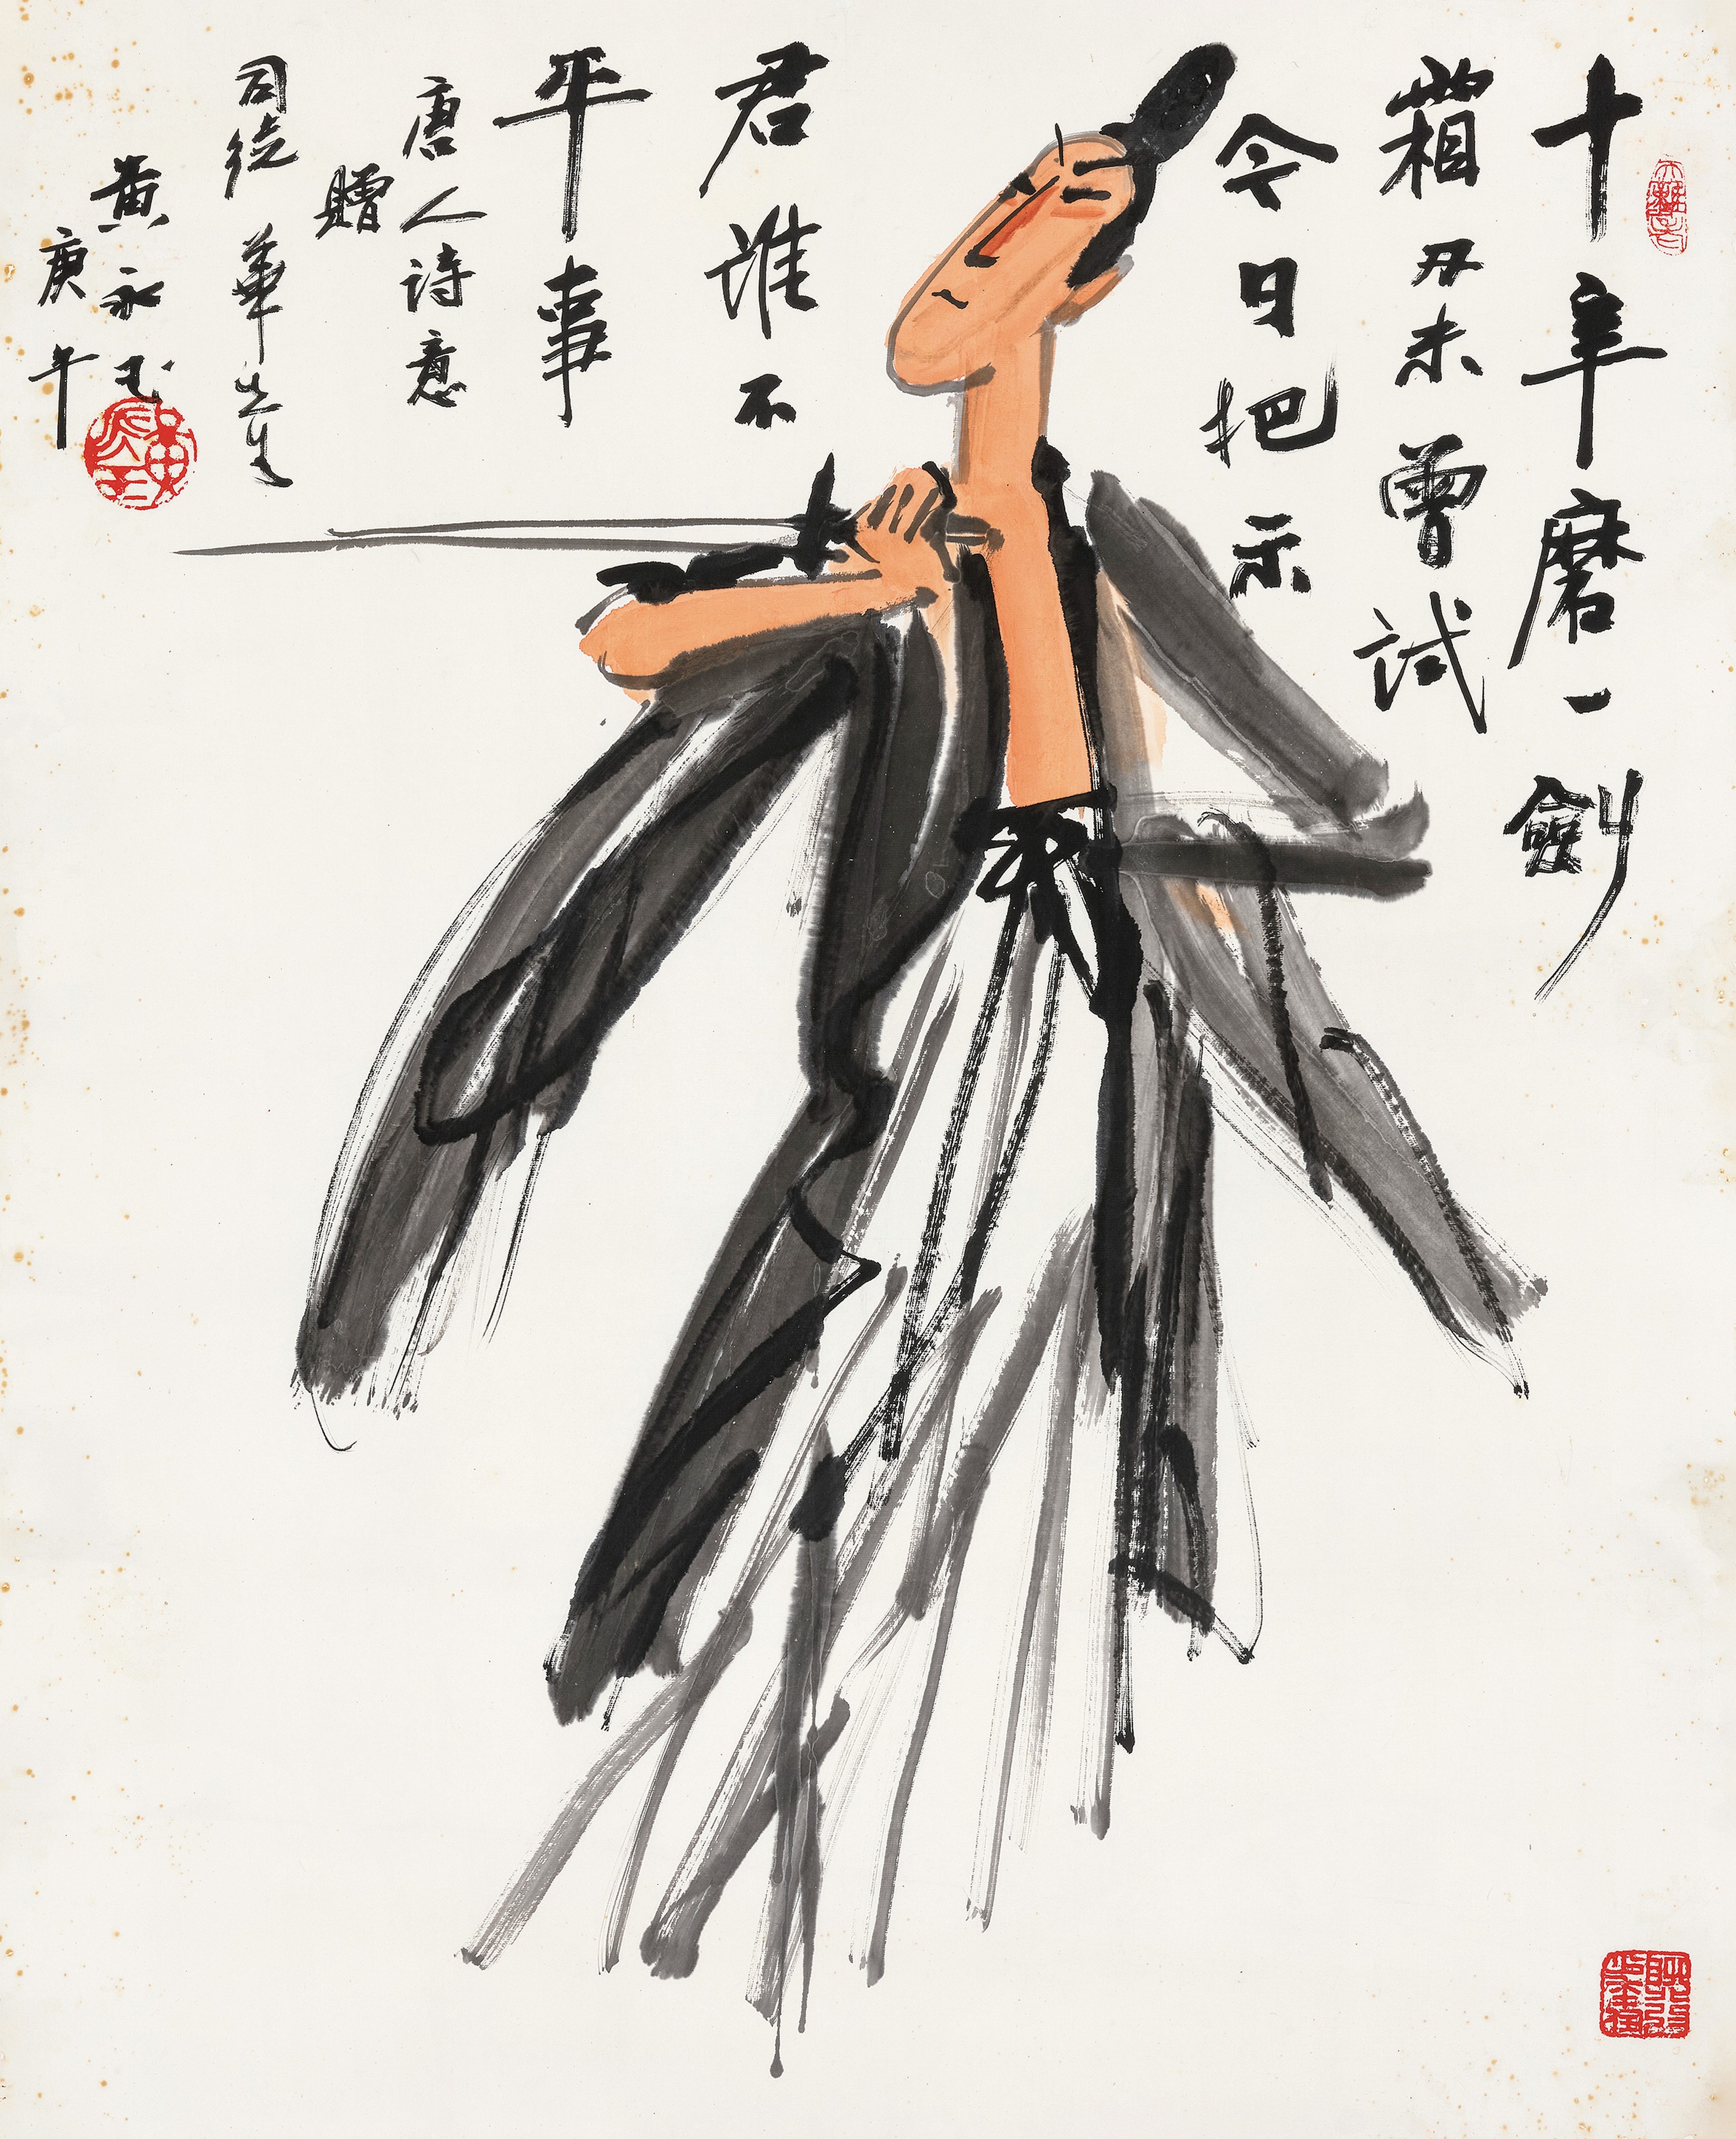 十年磨一劍
霜刃未曾試
今日把示
君誰不
平事
唐人詩意
贈
司徒華先生
黃永玉
庚午